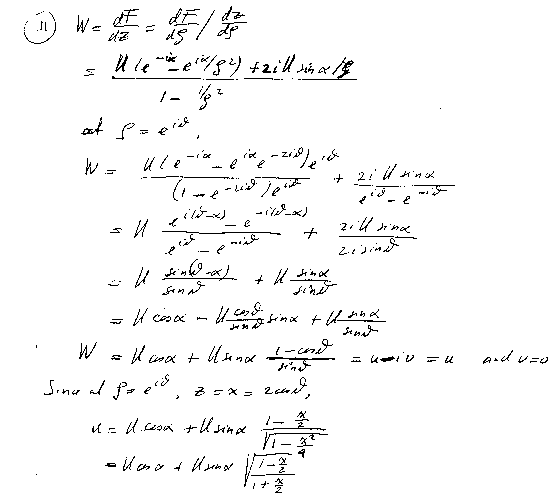 11 W = dF/dz = dF/dρ / dz/dρ
= U(e^{-iα} - e^{iα}/ρ²) + 2iU sin α/ρ / 1 - 1/ρ²
at ρ = e^{iϑ},
W = U(e^{-iα} - e^{iα} e^{-2iϑ})e^{iϑ} / (1 - e^{-2iϑ})e^{iϑ} + 2iU sin α / e^{iϑ} - e^{-iϑ}
= U e^{i(ϑ-α)} - e^{-i(ϑ-α)} / e^{iϑ} - e^{-iϑ} + 2iU sin α / 2i sin ϑ
= U sin(ϑ-α) / sin ϑ + U sin α / sin ϑ
= U cos α - U cos ϑ / sin ϑ sin α + U sin α / sin ϑ
W = U cos α + U sin α 1 - cos ϑ / sin ϑ = u - iv = u and v = 0
Since at ρ = e^{iϑ}, z = x = 2 cos ϑ,
u = U cos α + U sin α 1 - x/2 / √(1 - x²/4)
= U cos α + U sin α √(1 - x/2 / 1 + x/2)